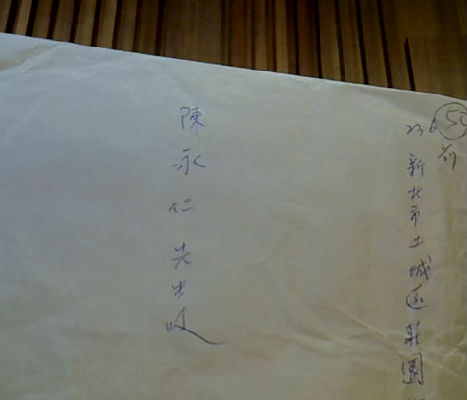 236
新北市土城區莊園
陳永仁先生收